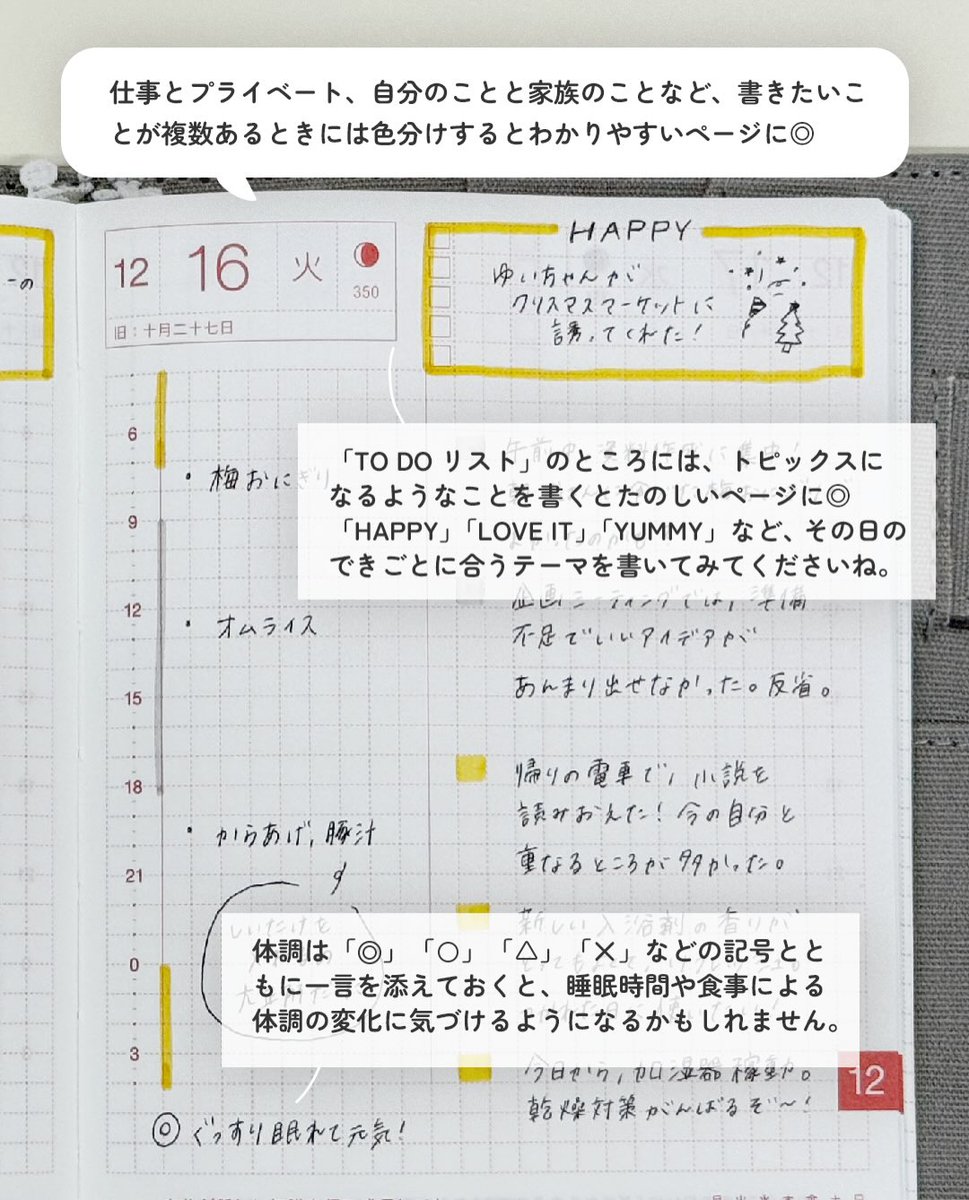 仕事とプライベート、自分のことと家族のことなど、書きたいこ
とが複数あるときには色分けするとわかりやすいページに◎
12 16 火
350
旧：十月二十七日
HAPPY
ゆいちゃんが
クリスマスマーケットに
誘ってくれた！
ーの
「TO DO リスト」のところには、トピックスに
なるようなことを書くとたのしいページに◎
「HAPPY」「LOVE IT」「YUMMY」など、その日の
できごとに合うテーマを書いてみてくださいね。
6
・梅おにぎり
9
12
・オムライス
15
18
・からあげ, 豚汁
21
0
3
企画ミーティングでは, 準備
不足でいいアイデアが
あんまり出せなかった。反省。
帰りの電車で, 小説を
読みおえた！今の自分と
重なるところが多かった。
新しい入浴剤の香りが
体調は「◎」「○」「△」「×」などの記号とと
もに一言を添えておくと、睡眠時間や食事による
体調の変化に気づけるようになるかもしれません。
今日から, 加湿器稼動。
乾燥対策がんばるぞ〜！
12
◎ ぐっすり眠れて元気！